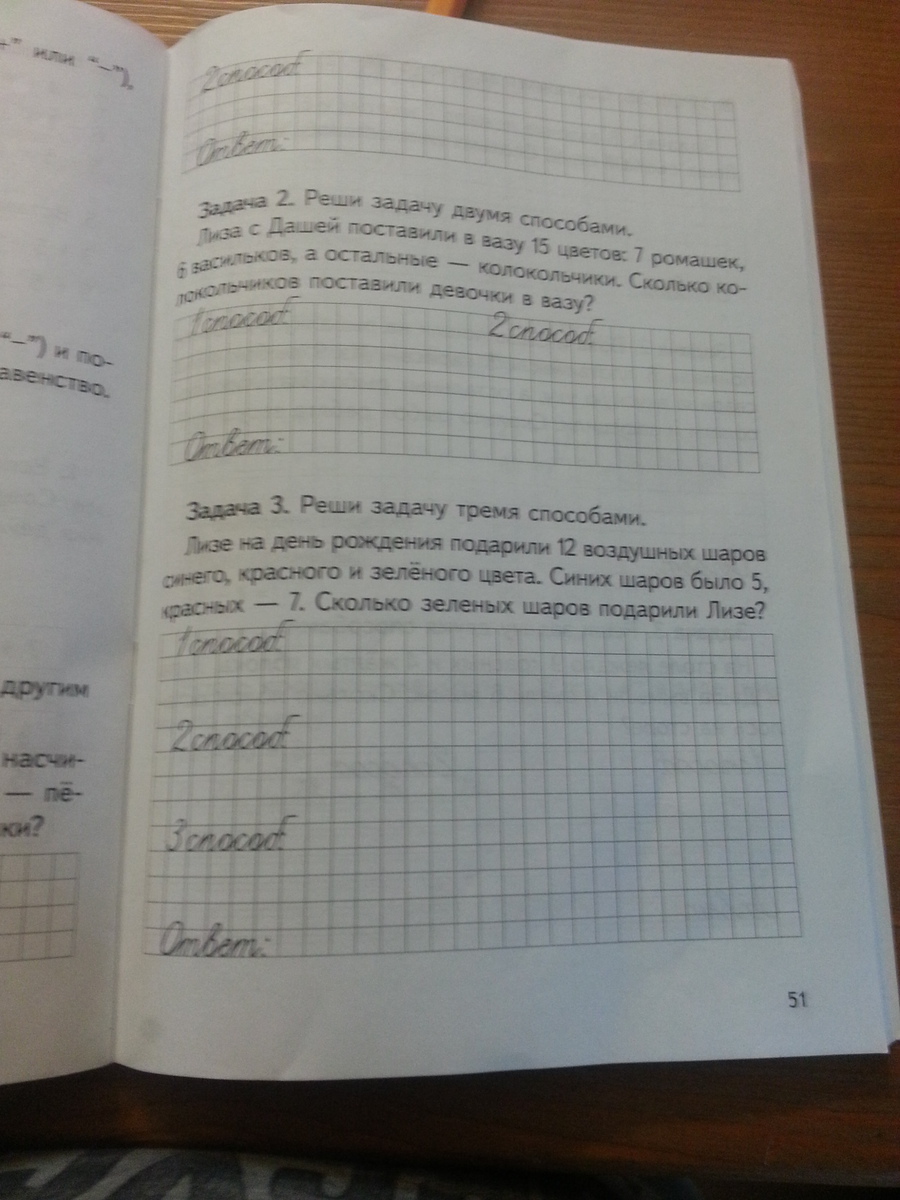 +” или “–”),
2 способ
Ответ:
Задача 2. Реши задачу двумя способами.
Лиза с Дашей поставили в вазу 15 цветов: 7 ромашек,
6 васильков, а остальные — колокольчики. Сколько ко-
локольчиков поставили девочки в вазу?
1 способ 2 способ
“–”) и по-
авенство.
Ответ:
Задача 3. Реши задачу тремя способами.
Лизе на день рождения подарили 12 воздушных шаров
синего, красного и зелёного цвета. Синих шаров было 5,
красных — 7. Сколько зеленых шаров подарили Лизе?
1 способ
другим
2 способ
насчи-
— пё-
ки?
3 способ
Ответ:
51